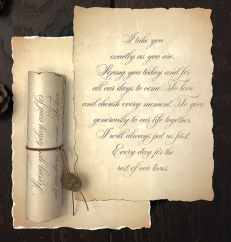 I take you
exactly as you are.
Loving you today and for
all our days to come. To love
and cherish every moment. To give
generously to our life together.
I will always put us first.
Every day for the
rest of our lives.
Loving you today and for